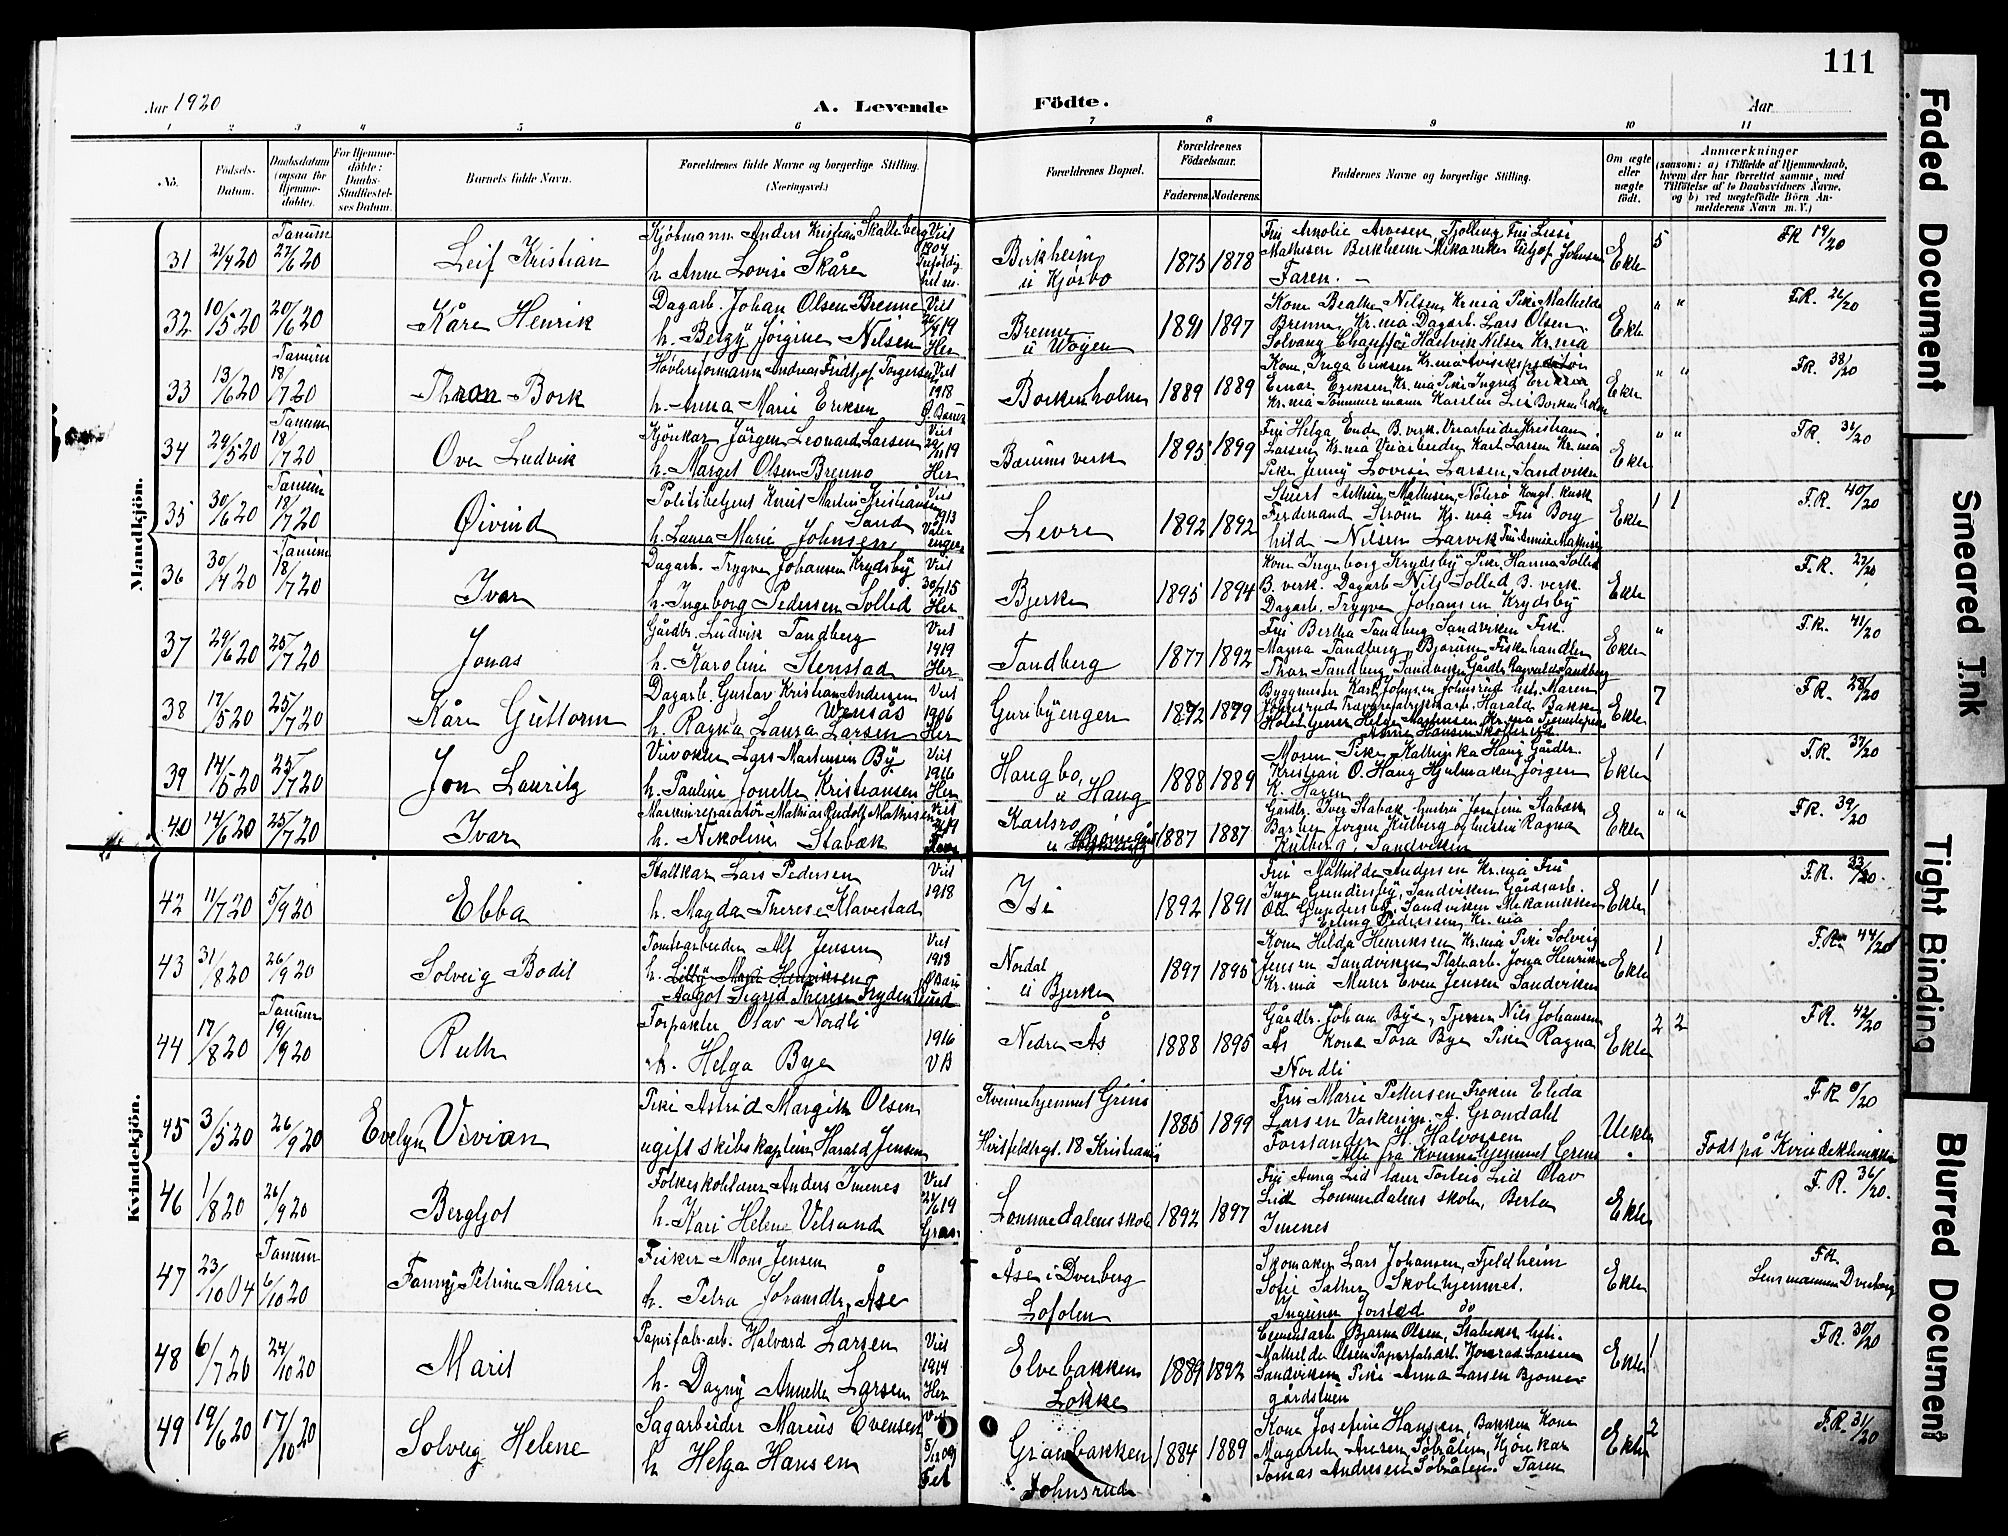 111
Aar 1920
A. Levende
Födte.
Aar
1 2 3 4 5 6 7 8 9 10 11
No.
Födsels-
Datum.
Daabsdatum
(ogsaa for
Hjemme-
döbte).
For Hjemme-
döbte:
Daabs-
Stadfæstel-
ses Datum.
Barnets fulde Navn.
Forældrenes fulde Navne og borgerlige Stilling.
(Næringsvei.)
Forældrenes Bopæl.
Forældrenes
Födselsaar.
Faderens. Moderens.
Faddernes Navne og borgerlige Stilling.
Om ægte
eller
uægte
födt.
Anmærkninger
(saasom: a) i Tilfælde af Hjemmedaab,
hvem der har forrettet samme, med
Tilföielse af to Daabsvidners Navne,
og b) ved uægtefödte Börn An-
melderens Navn m. V.)
Mandkjön.
31 21/4 20 Tanum 27/6 20
Leif Kristian
Kjöbmann Anders Kristian Skalleberg
h. Anne Lovise Skåre
Viet 1904
Birkheim
u Kjørbo
1875 1878
Mathisen Berkheim Mekaniker Johnsen
Faren.
Ekte 5 FR 19/20
32 10/5 20 20/6 20
Kåre Henrik
Dagarb. Johan Olsen Brenne
h. Bergy Jörgine Nilsen
Viet 19 Her
Brenne
u Wøyen
1891 1897
Kone Beathe Nilsen, Kr.nia Pike Mathilde
Brenne, Kr.nia Dagarb. Lars Olsen
Solvang Chauffør Halvin Nilsen Kr.nia
Ekte " " F.R. 26/20
33 13/6 20 Tanum 18/7 20
Thron Bork
Høvleriformann Andreas Fridtjof Torgersen
h. Anna Marie Eriksen
Viet 1918
Borkenholm
1889 1889
Kone, Inga Eriksen Kr.nia
Einar Eriksen Kr.nia Pike Ingrid Eriksen
Kr.nia Tömmermann Karsten Lie Borkenholm
Ekte " " FR. 38/20
34 29/5 20 Tanum 18/7 20
Ove Ludvik
Kjörekar Jörgen Leonard Larsen
h. Margit Olsen Brenno
Viet 19 Her
Bærums verk
1895 1899
Fru Helga Ende B. verk. Kristian
Larsen Kr.nia Karl Larsen Kr.nia
Pike Jenny Lovise Larsen, Sandviken
Ekte " " FR. 31/20
35 30/6 20 Tanum 18/7 20
Øivind
Politibetjent Knut Martin Kristiansen
Sand
h. Laura Marie Johnsen
Viet 1913
Vålerengen
Levre
1892 1892
Stuert Arthur Mathisen, Nöterö Kongl. kusk
Ferdinand Ström Kr.nia Fru Borg
hild Nilsen Larvik Fru Annie Mathisen
Ekte 1 1 F.R. 40/20
36 30/4 20 Tanum 18/7 20
Ivar
Dagarb. Trygve Johansen Krydsby
h. Ingeborg Pedersen Solled
Viet 30/ 15 Her
Bjerke
1895 1894
Kone Ingeborg Krydsby Pike Hanna Solled
B. verk. Dagarb Nils Solled B. verk.
Dagarb. Trygve Johansen Krydsby
Ekte F.R. 27/20
37 29/6 20 25/7 20
Jonas
Gårdbr. Ludvik Tandberg
h. Karoline Stenstad
Viet 1919 Her
Tandberg
1877 1892
Fru Bertha Tandberg Sandviken Frk.
Magna Tandberg, Bjørum Fiskehandler
Thor Tandberg Sandviken Gårdbr. Ragnvald Tandberg
Ekte " F.R. 41/20
38 17/5 20 25/7 20
Kåre Guttorm
Dagarb. Gustav Kristian Andersen
Wensås
h. Ragna Laura Larsen
Viet 1906 Her
Guribyengen
1872 1879
Byggmester Karl Johnsen Johnsrud hst. Maren
Johnsrud Harald Bakken
Anne Hansen
Ekte 7 F.R. 28/20
39 14/5 20 25/7 20
Jon Lauritz
Lars Martinsen By
h. Pauline Jonette Kristiansen
Viet 1916 Her
Haugbo,
u Haug
1888 1889
Moren Pike Kathinka Haug Gårdbr.
Kristian O. Haug Hjulmaker Jörgen
K. Haren
Ekte 1 F.R. 37/20
40 14/6 20 25/7 20
Ivar
Maskinreparatör Mathias Rudolf Mathisen
h. Nikoline Stabæk
Karlsro
1887 1887
Gårdbr. Iver Stabæk hustru Josefine Stabæk
Jörgen Kulberg og hustru Ragna
Kulberg, Sandviken
Ekte " " FR. 39/20
Kvindekjön.
42 11/7 20 5/9 20
Ebba
Stallkar Lars Pedersen
h. Magda Therese Klavestad
Viet 1918
Isi
1892 1891
Fru Mathilde Andersen Kr.nia Fru
Inga Gundersby, Sandviken Gårdsarb.
Ole Gundersby, Sandviken Mekanikeren
Erling Pedersen Kr.nia
Ekte 1 F.R. 33/20.
43 31/8 20 26/9 20
Solveig Bodil
Tomtearbeider Alf Jensen
h. Lilly Marie Henriksen
Aagot Sigrid Therese Frydenlund
Viet 1918
Nordal
u Bjerke
1897 1895
Kone Hilda Henriksen Kr.nia Pike Solveig
Jensen Sandviken Platearb. Jona Henriksen
Kr.nia Murer Even Jensen Sandviken
Ekte 1 F.R. 44/20
44 17/8 20 Tanum 19/9 20
Ruth
Forpakter Olav Nordli
h. Helga Bye
1916
V B
Nedre Ås
1888 1895
Gårdbr. Johan Bye, Tjener Nils Johansen
Ås Kone Tora Bye Pike Ragna
Nordli
Ekte 2 2 FR. 42/20
45 3/5 20 26/9 20
Evelyn Vivian
Pike Astrid Margith Olsen
ugift skibskaptein Harald Jensen
Kvinnehjemmet Grini
Hvitfeldtsgt. 18 Kristiania
1885 1899
Fru Marie Pettersen Fröken Elida
Larsen Vaskerine A. Grøndahl
Forstander H. Halvorsen
Alle fra Kvinnehjemmet Grini
Uekte
F R 0/20
Født på Kvindeklinikken
46 1/8 20 26/9 20
Bergljot
Folkeskolelærer Anders Imenes
h. Kari Helene Velsand
Viet 21/6 19
Gran
Lommedalens skole
1892 1897
Fru Anna Lid lærer Torleiv Lid Olav
Lid Lommedalens skole, Berta
Imenes
Ekte F.R. 36/20.
47 23/10 04 Tanum 6/10 20
Fanny Petrine Marie
Fisker Mons Jensen
h. Petra Johansdtr. Åse
Åse i Dverberg
Lofoten
Skomaker Lars Johansen, Fjeldheim
Sofie Sather, Skolehjemmet.
Ingunn Jorstad do
Ekte
FR
Lensmannen Dverberg
48 6/7 20 24/10 20
Marit
Papirfabr.arb. Halvard Larsen
h. Dagny Annette Larsen
Viet 1914 Her
Elvebakken
Løkke
1889 1892
Cementarb Bjarne Olsen, Stabekk hst.
Mathilde Olsen Papirfabrarb. Konrad Larsen
Sandviken Pike Anna Larsen Bjorne-
gårdstuen
Ekte 1 F.R. 30/20
49 19/6 20 17/10 20
Solveig Helene
Sagarbeider Marius Evensen
h Helga Hansen
Viet 5/12 09
Fet
Granbakken
Johnsrud
1884 1889
Kone Josefine Hansen, Bakken Kone
Magarete Ansen Söbråten, Kjörekar
Tomas Andresen Söbråten. Faren
Ekte 2 F.R. 31/20
Faded Document
Smeared Ink
Tight Binding
Blurred Document